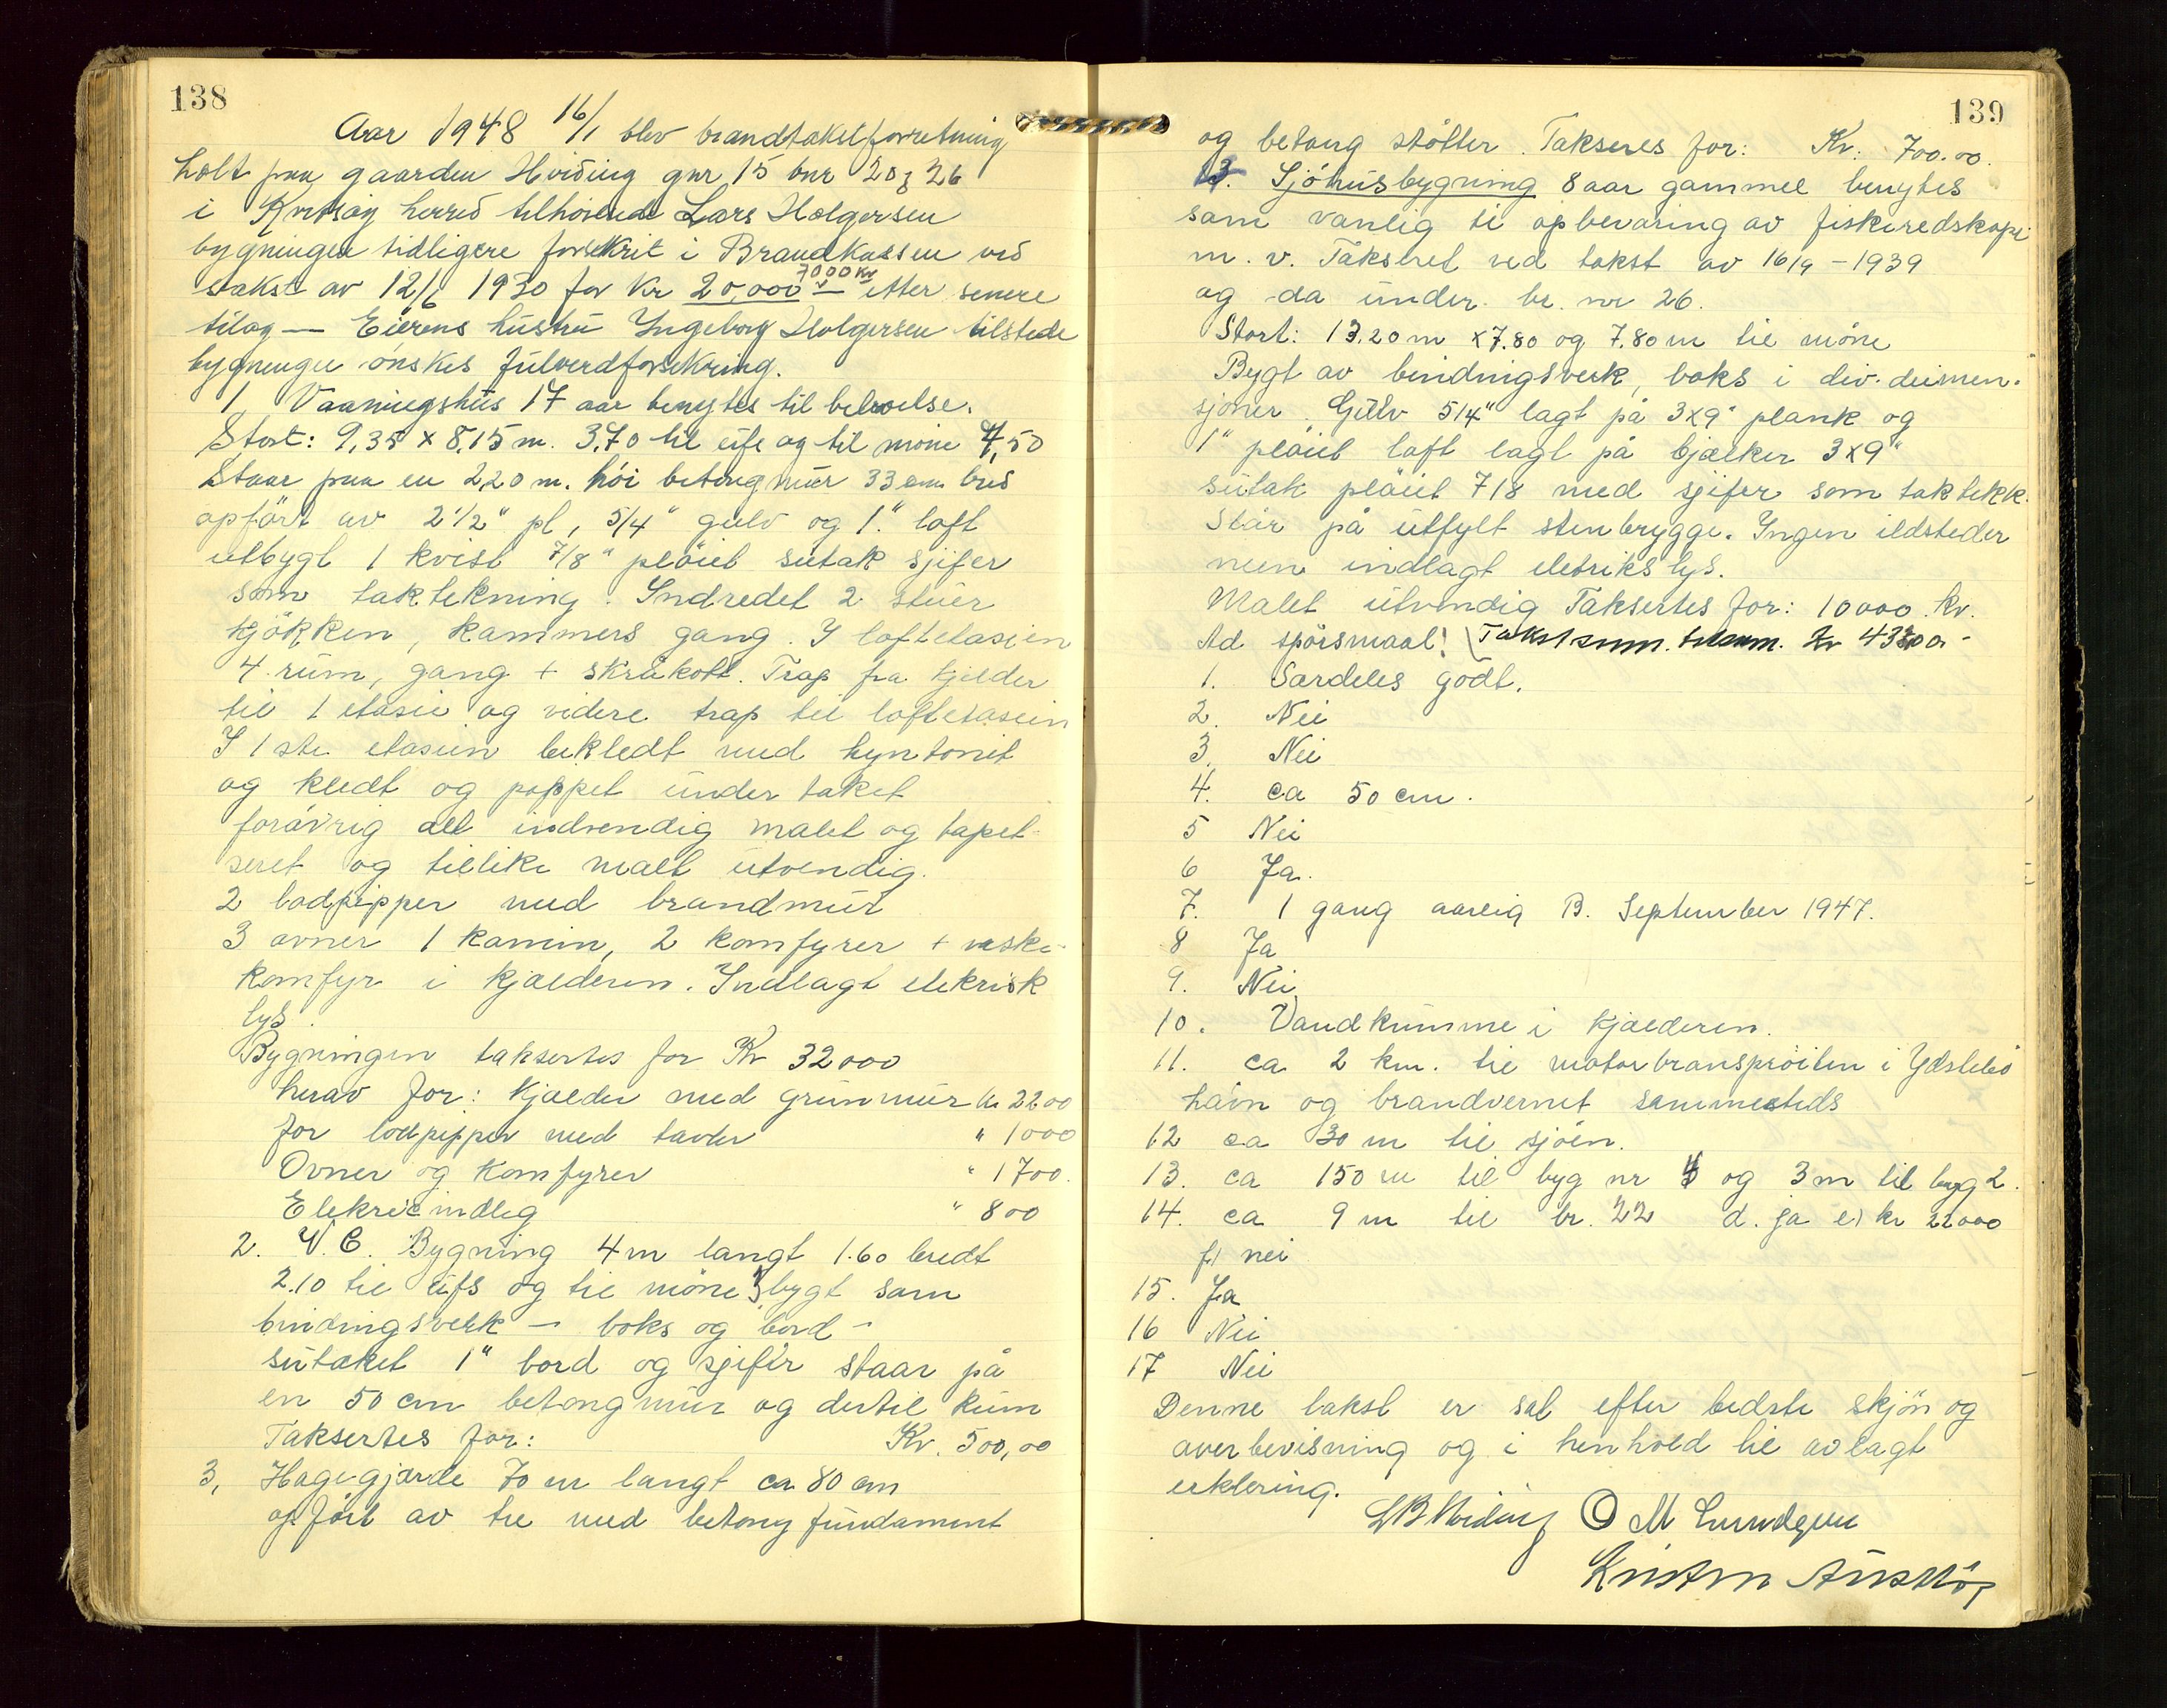 138
Aar 1948 16/1 blev brandtakstforretning
holt paa gaarden Hviding gnr 15 bnr 20 & 26
i Kvitsøy herred tilhörende Lars Holgersen
bygningen tidligere forsekrit i Brandkassen ved
takst av 12/6 1930 for Kr 20,000 — etter senere
7000 Kr
tilag — Eierens hustru Yngeborg Holgersen tilstede
bygningen önskes fulverdforsekring.
1 Vaaningshus 17 aar benytes til beboelse.
Stort: 9,35 x 8,15 m. 3,70 til ufs og til möne 4,50
Staar paa en 2,20 m. höi betongmur 33 cm bred
opfört av 2 1/2" pl, 5/4" gulv og 1" loft
utbygt 1 kvist 7/8" plöiet sutak sjifer
som taktekning. Indredet 2 stuer
kjökken, kammers gang. I loftetasien
4 rum, gang + skråkott. Trap fra kjelder
til 1 etasie og videre trap til loftetasein
I 1ste etasien bekledt med hyntonit
og kledt og pappet under taket
foråvrig alt indvendig malet og tapet-
seret og tillike malt utvendig.
2 lodpipper med brandmur
3 ovner 1 kamin, 2 komfyrer + vaske-
komfyr i kjælderen. Indlagt elekrisk
lys.
Bygningen taksertes for Kr 32000
herav for: Kjælder med grunmur kr 2200
for lodpipper med " 1000
Ovner og Komfyrer " 1700.
Elekric indleg " 800
2. V. C. Bygning 4 m langt 1.60 bredt
2.10 til ufs og til möne 3 bygt som
bindingsverk — boks og bord -
sutaket 1" bord og sjifer staar på
en 50 cm betongmur og dertil kum
Taksertes for: Kr. 500,00
3, Hagegjærde 70 m langt ca 80 cm
opfört av tre med betong fundament
139
og betong stötter. Takseres for: Kr: 700.00.
3. Sjöhusbygning 8 aar gammel benytes
som vanlig til opbevaring av fiskeredskapi
m. v. Takseret ved takst av 16/9 - 1939
og da under br. nr 26.
Stort: 13.20 m x 7.80 og 7.80 m til möne
Bygt av bindingsverk, boks i div. deimen-
sjoner. Gulv 5/4" lagt på 3x9" plank og
1" plöiet loft lagt på bjælker 3x9"
sutak plöiet 7/8 med sjifer som taktekk.
Står på utfylt stenbrygge. Ingen ildsteder
men indlagt eletriks lys.
Malet utvendig Taksertes for: 10000 kr.
Ad spörsmaal! Takstsum. tilsam. Kr 43200 -
1. Særdeles godt.
2. Nei
3. Nei
4. ca 50 cm.
5 Nei
6 Ja.
7. 1 gang aarlig B. September 1947.
8 Ja
9. Nei
10. Vandkumme i kjælderen.
11. ca 2 km. til motorbransprøiten i Ydstebö
havn og brandvernet sammesteds
12 ca 30 m til sjöen.
13. ca 150 m til byg nr 4 og 3 m til byg 2.
14. ca 9 m til br. 22 d. ja e) kr 22000
f) nei
15. Ja
16 Nei
17 Nei
Denne takst er sat efter bedste skjön og
overbevisning og i henhold til avlagt
erklering.
L B Hviding O M Lundgren